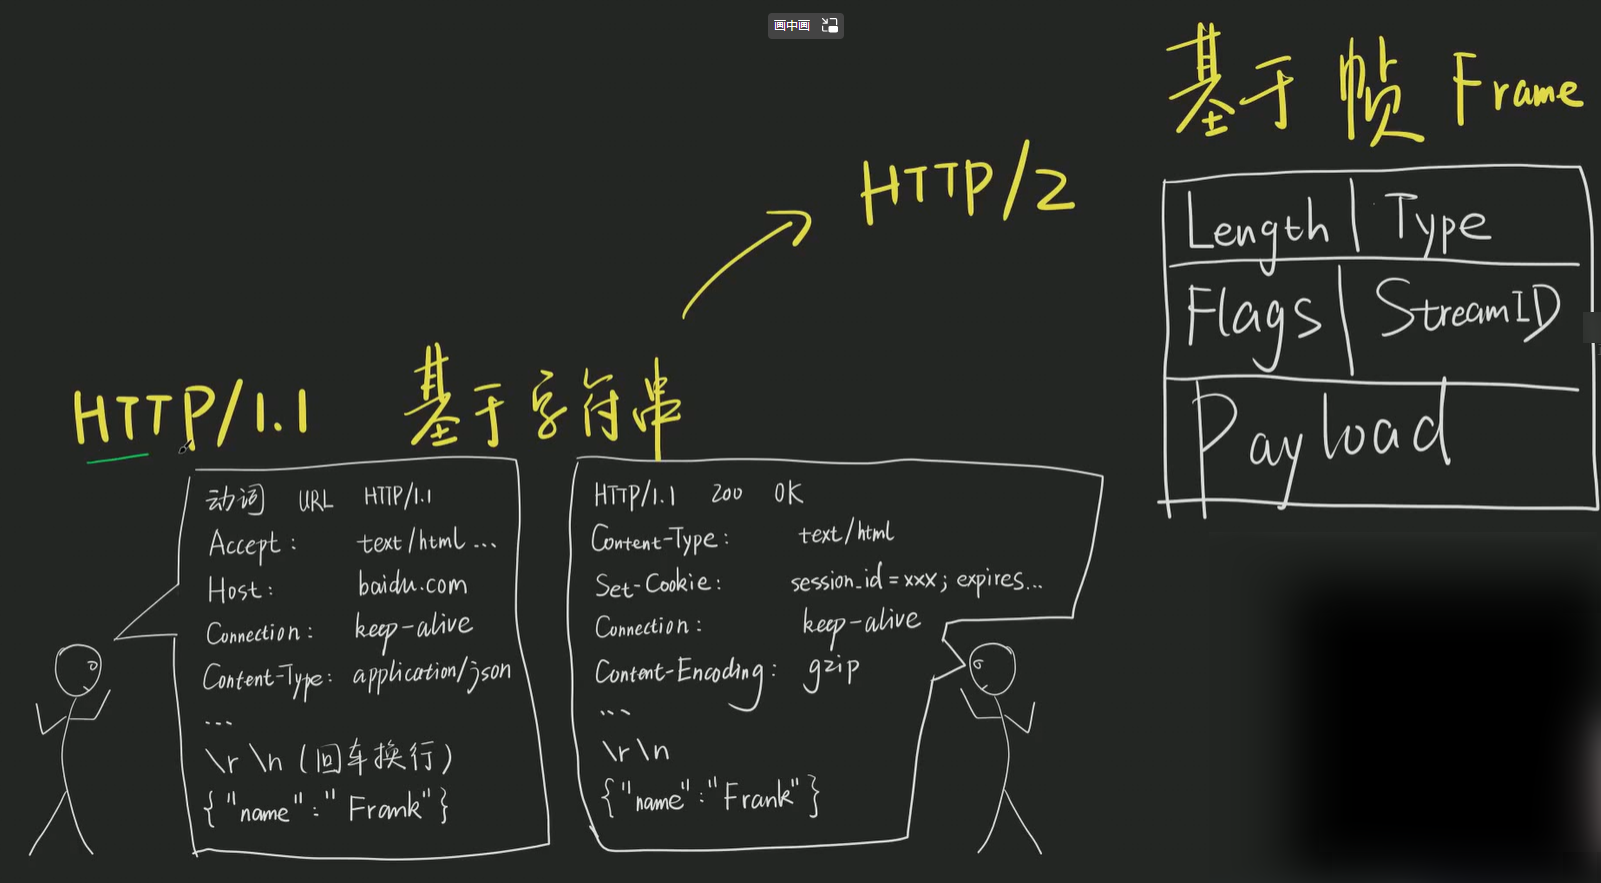 画中画
基于 帧 Frame
HTTP/2
Length | Type
Flags | StreamID
Payload
HTTP/1.1 基于字符串
动词 URL HTTP/1.1
Accept: text/html ...
Host: baidu.com
Connection: keep-alive
Content-Type: application/json
...
\r \n (回车换行)
{"name":"Frank"}
HTTP/1.1 200 OK
Content-Type: text/html
Set-Cookie: session_id=xxx; expires...
Connection: keep-alive
Content-Encoding: gzip
...
\r\n
{"name":"Frank"}